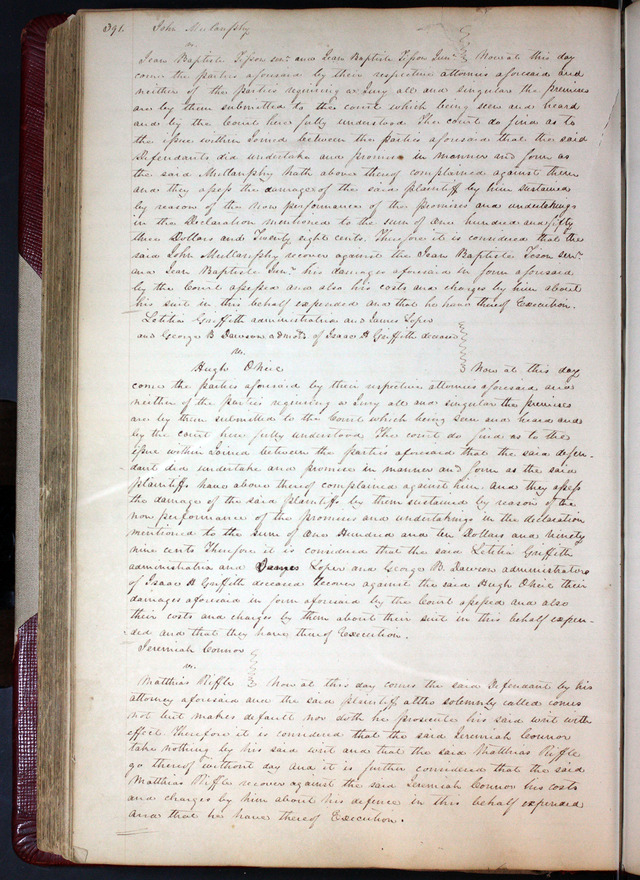 391. John Mullanphy
vs.
Jean Baptiste Tisson senr. and Jean Baptiste Tisson Junr. Now at this day
come the parties aforesaid by their respective attornies aforesaid and
neither of the parties requiring a Jury all and singular the premises
are by them submitted to the court which being seen and heard
and by the Court here fully understood The court do find as to
the issue within Joined between the parties aforesaid that the said
Defendants did undertake and promise in manner and form as
the said Mullanphy hath above thereof complained against them
and they assess the damages of the said plaintiff by him sustained
by reason of the Non performance of the promises and undertakings
in the Declaration mentioned to the sum of One hundred and fifty
three Dollars and Twenty eight cents. Therefore it is considered that the
said John Mullanphy recover against the Jean Baptiste Tison Senr.
and Jean Baptiste Junr. his damages aforesaid in form aforesaid
by the Court assessed and also his costs and charges by him about
his suit in this behalf expended and that he have thereof Execution.
Letitia Griffith administratrix and James Loper
and George B Dawson admrs. of Isaac H Griffith deceased
vs.
Hugh ONeil Now at this day
come the parties aforesaid by their respective attornies aforesaid and
neither of the parties requiring a Jury all and singular the premises
are by them submitted to the Court which being seen and heard and
by the court here fully understood The court do find as to the
issue within Joined between the parties aforesaid that the said defen-
dant did undertake and promise in manner and form as the said
plaintiffs have above thereof complained against him and they assess
the damage of the said plaintiffs by them sustained by reason of the
non performance of the promises and undertakings in the declaration
mentioned to the sum of One Hundred and ten Dollars and ninety
nine cents Therefore it is considered that the said Letitia Griffith
administratrix and James Loper and George B. Dawson administrators
of Isaac H Griffith deceased recover against the said Hugh ONeil their
damages aforesaid in form aforesaid by the Court assessed and also
their costs and charges by them about their suit in this behalf expen-
ded and that they have thereof Execution.
Jeremiah Connor
vs.
Matthias Riffle Now at this day comes the said Defendant by his
attorney aforesaid and the said plaintiff altho solemnly called comes
not but makes default nor doth he prosecute his said writ with
effect. Therefore it is considered that the said Jeremiah Connor
take nothing by his said writ and that the said Matthias Riffle
go thereof without day and it is further considered that the said
Matthias Riffle recover against the said Jeremiah Connor his costs
and charges by him about his defence in this behalf expended
and that he have thereof Execution.